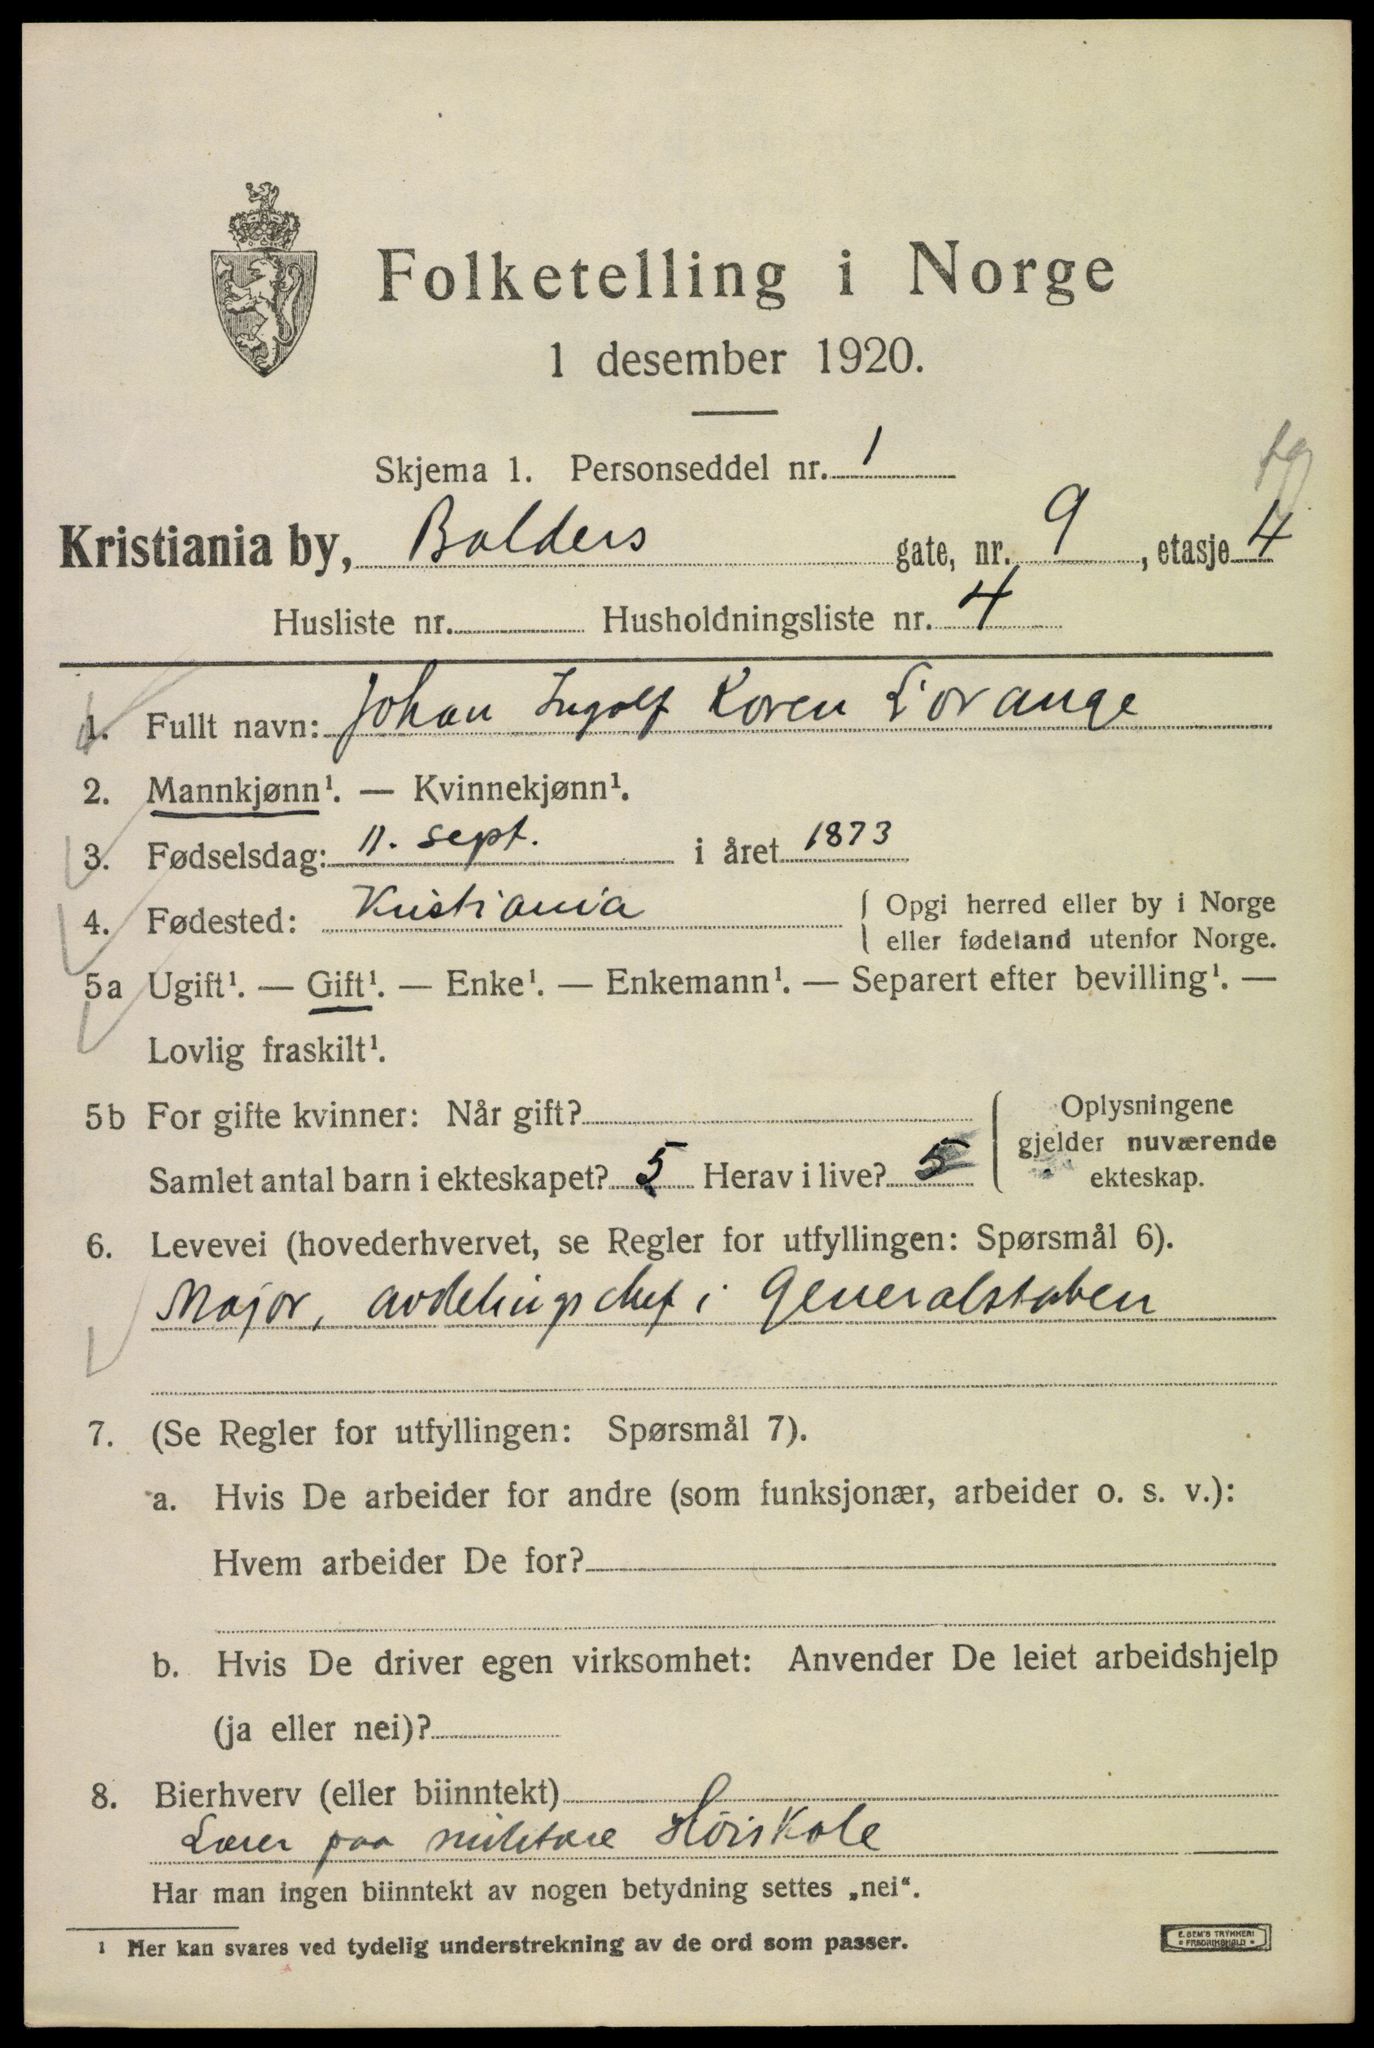 Folketelling i Norge
1 desember 1920.
Skjema 1. Personseddel nr. 1
Kristiania by, Balders gate, nr. 9, etasje 4
Husliste nr. Husholdningsliste nr. 4
1. Fullt navn: Johan Ingolf Koren L'orange
2. Mannkjønn¹. — Kvinnekjønn¹.
3. Fødselsdag: 11. sept. i året 1873
4. Fødested: Kristiania { Opgi herred eller by i Norge
eller fødeland utenfor Norge.
5a Ugift¹. — Gift¹. — Enke¹. — Enkemann¹. — Separert efter bevilling¹. —
Lovlig fraskilt¹.
5b For gifte kvinner: Når gift?
Samlet antal barn i ekteskapet? 5 Herav i live? 5
{ Oplysningene
gjelder nuværende
ekteskap.
6. Levevei (hovederhvervet, se Regler for utfyllingen: Spørsmål 6).
Major, avdelingschef i Generalstaben
7. (Se Regler for utfyllingen: Spørsmål 7).
a. Hvis De arbeider for andre (som funksjonær, arbeider o. s. v.):
Hvem arbeider De for?
b. Hvis De driver egen virksomhet: Anvender De leiet arbeidshjelp
(ja eller nei)?
8. Bierhverv (eller biinntekt)
Lærer paa militære Høiskole
Har man ingen biinntekt av nogen betydning settes „nei".
¹ Mer kan svares ved tydelig understrekning av de ord som passer.
E. SEM'S TRYKKERI
* FREDRIKSHALD *